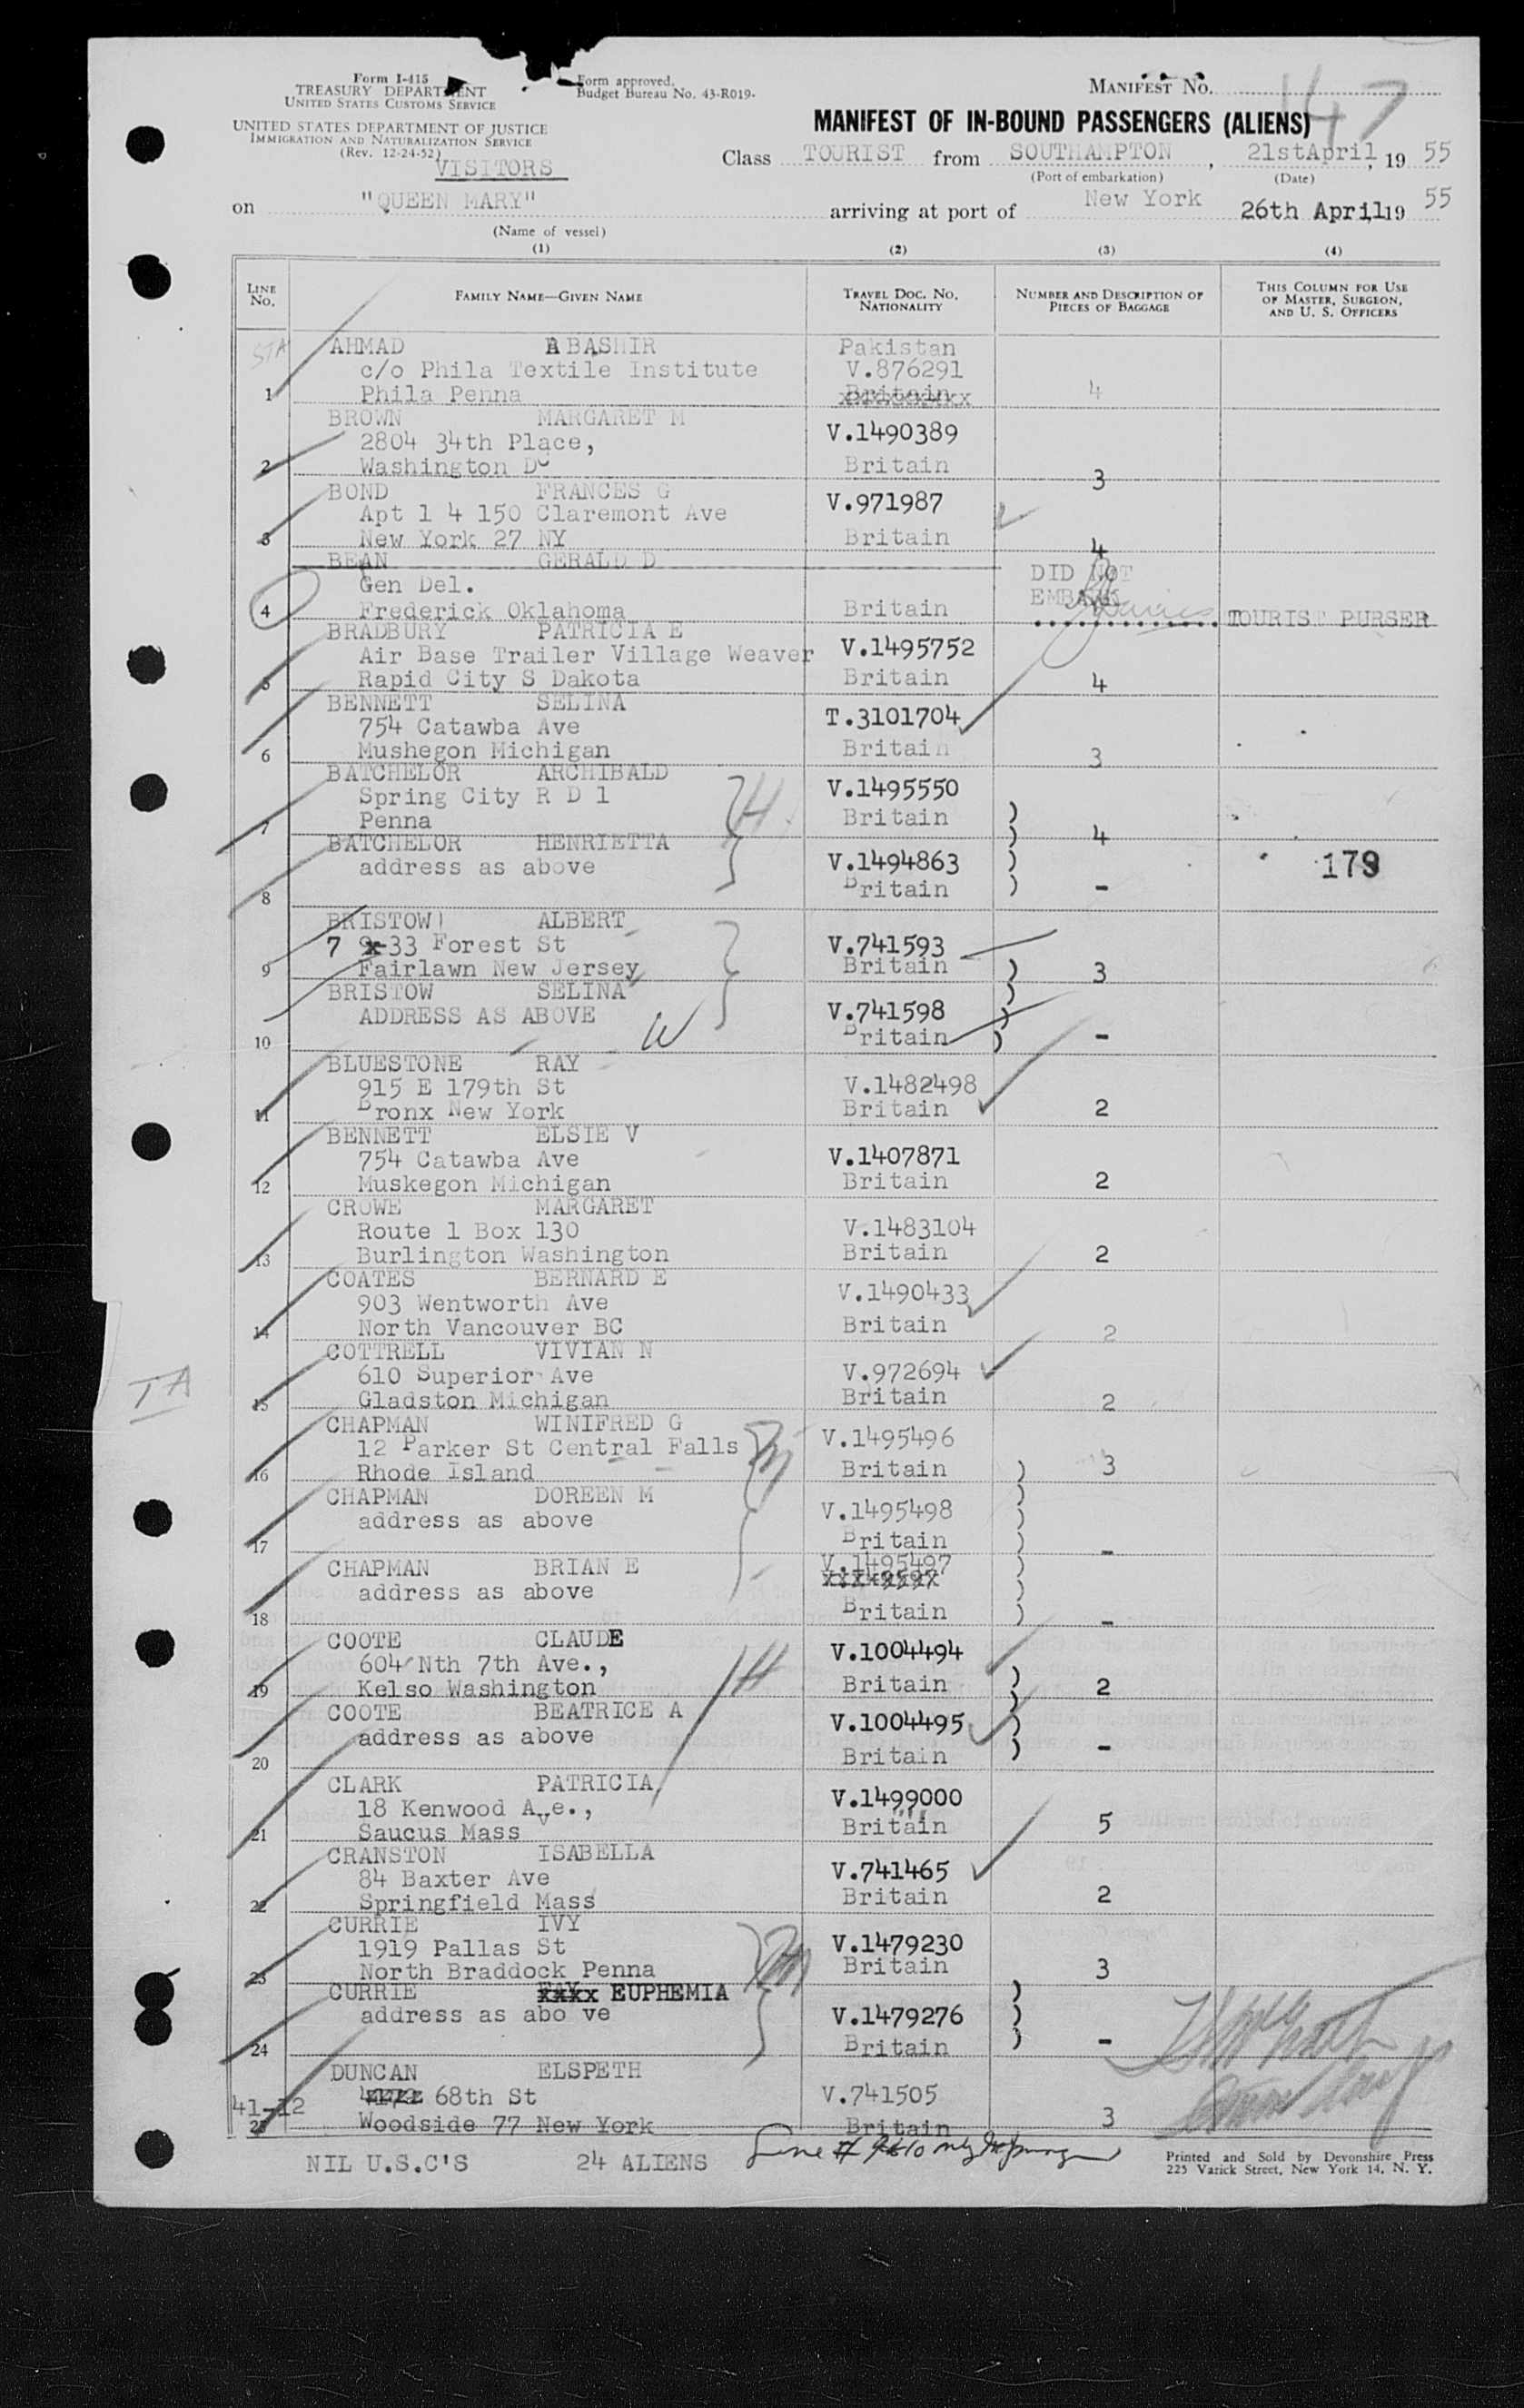 Form I-415
TREASURY DEPARTMENT
UNITED STATES CUSTOMS SERVICE
UNITED STATES DEPARTMENT OF JUSTICE
IMMIGRATION AND NATURALIZATION SERVICE
(Rev. 12-24-52)
Form approved.
Budget Bureau No. 43-R019-
MANIFEST No. 147
MANIFEST OF IN-BOUND PASSENGERS (ALIENS)
VISITORS
Class TOURIST from SOUTHAMPTON, 21stApril, 19 55
(Port of embarkation) (Date)
on "QUEEN MARY" arriving at port of New York 26th April, 19 55
(Name of vessel)
(1) (2) (3) (4)
LINE No.
FAMILY NAME—GIVEN NAME
TRAVEL DOC. NO. NATIONALITY
NUMBER AND DESCRIPTION OF PIECES OF BAGGAGE
THIS COLUMN FOR USE OF MASTER, SURGEON, AND U. S. OFFICERS
STA AHMAD BASHIR Pakistan
c/o Phila Textile Institute V.876291
1 Phila Penna Britain 4
BROWN MARGARET M
2804 34th Place, V.1490389
2 Washington DC Britain 3
BOND FRANCES G
Apt 1 4 150 Claremont Ave V.971987
3 New York 27 NY Britain 4
BEAN GERALD D
Gen Del. DID NOT
4 Frederick Oklahoma Britain EMBARK TOURIST PURSER
BRADBURY PATRICIA E
Air Base Trailer Village Weaver V.1495752
5 Rapid City S Dakota Britain 4
BENNETT SELINA
754 Catawba Ave T.3101704
6 Mushegon Michigan Britain 3
BATCHELOR ARCHIBALD
Spring City R D 1 V.1495550
7 Penna Britain ) 4
BATCHELOR HENRIETTA
address as above V.1494863 179
8 Britain ) -
BRISTOW ALBERT
7 x-33 Forest St V.741593
9 Fairlawn New Jersey Britain ) 3
BRISTOW SELINA
ADDRESS AS ABOVE V.741598
10 W Britain ) -
BLUESTONE RAY
915 E 179th St V.1482498
11 Bronx New York Britain 2
BENNETT ELSIE V
754 Catawba Ave V.1407871
12 Muskegon Michigan Britain 2
CROWE MARGARET
Route 1 Box 130 V.1483104
13 Burlington Washington Britain 2
COATES BERNARD E
903 Wentworth Ave V.1490433
14 North Vancouver BC Britain 2
COTTRELL VIVIAN N
TA 610 Superior Ave V.972694
15 Gladston Michigan Britain 2
CHAPMAN WINIFRED G
12 Parker St Central Falls V.1495496
16 Rhode Island Britain ) 3
CHAPMAN DOREEN M
address as above V.1495498
17 Britain ) -
CHAPMAN BRIAN E V.1495497
address as above
18 Britain ) -
COOTE CLAUDE
604 Nth 7th Ave., V.1004494
19 Kelso Washington Britain ) 2
COOTE BEATRICE A
address as above V.1004495
20 Britain ) -
CLARK PATRICIA
18 Kenwood Ave., V.1499000
21 Saucus Mass Britain 5
CRANSTON ISABELLA
84 Baxter Ave V.741465
22 Springfield Mass Britain 2
CURRIE IVY
1919 Pallas St V.1479230
23 North Braddock Penna Britain 3
CURRIE EUPHEMIA
address as abo ve V.1479276
24 Britain ) -
DUNCAN ELSPETH
41-12 68th St V.741505
25 Woodside 77 New York Britain 3
NIL U.S.C'S 24 ALIENS
Line # 9 &10 only
Printed and Sold by Devonshire Press
225 Varick Street, New York 14, N. Y.